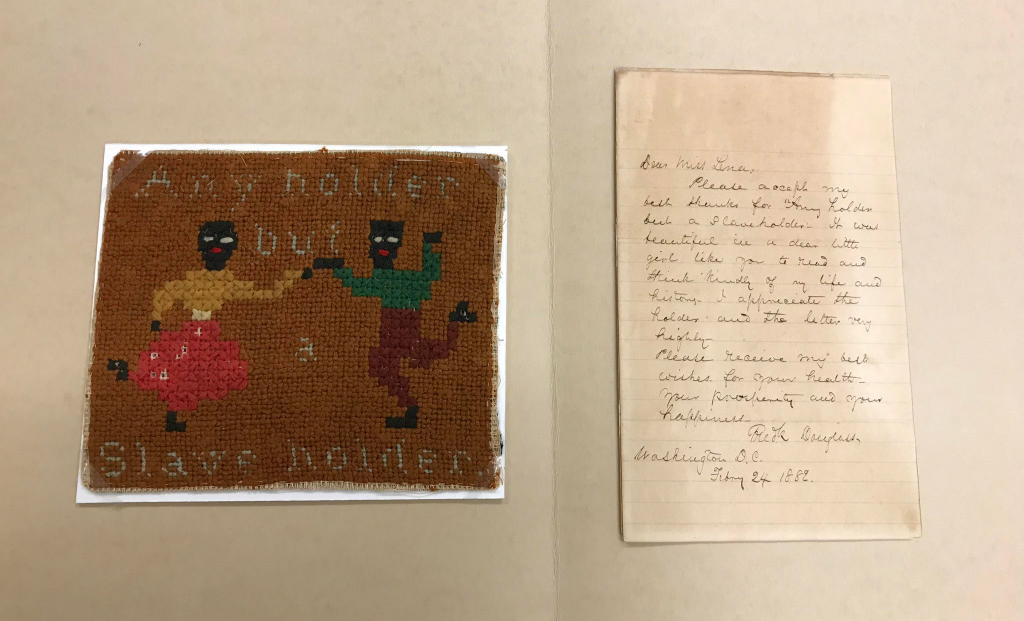 Any holder
but
a
Slave holder
Dear Miss Lena,
Please accept my
best thanks for "Any holder
but a Slaveholder - It was
beautiful in a dear little
girl like you to read and
think kindly of my life and
history - I appreciate the
holder - and the letter very
highly -
Please receive my best
wishes for your health -
your prosperity and your
happiness
Fredk Douglass.
Washington D.C.
Feby 24 1882.